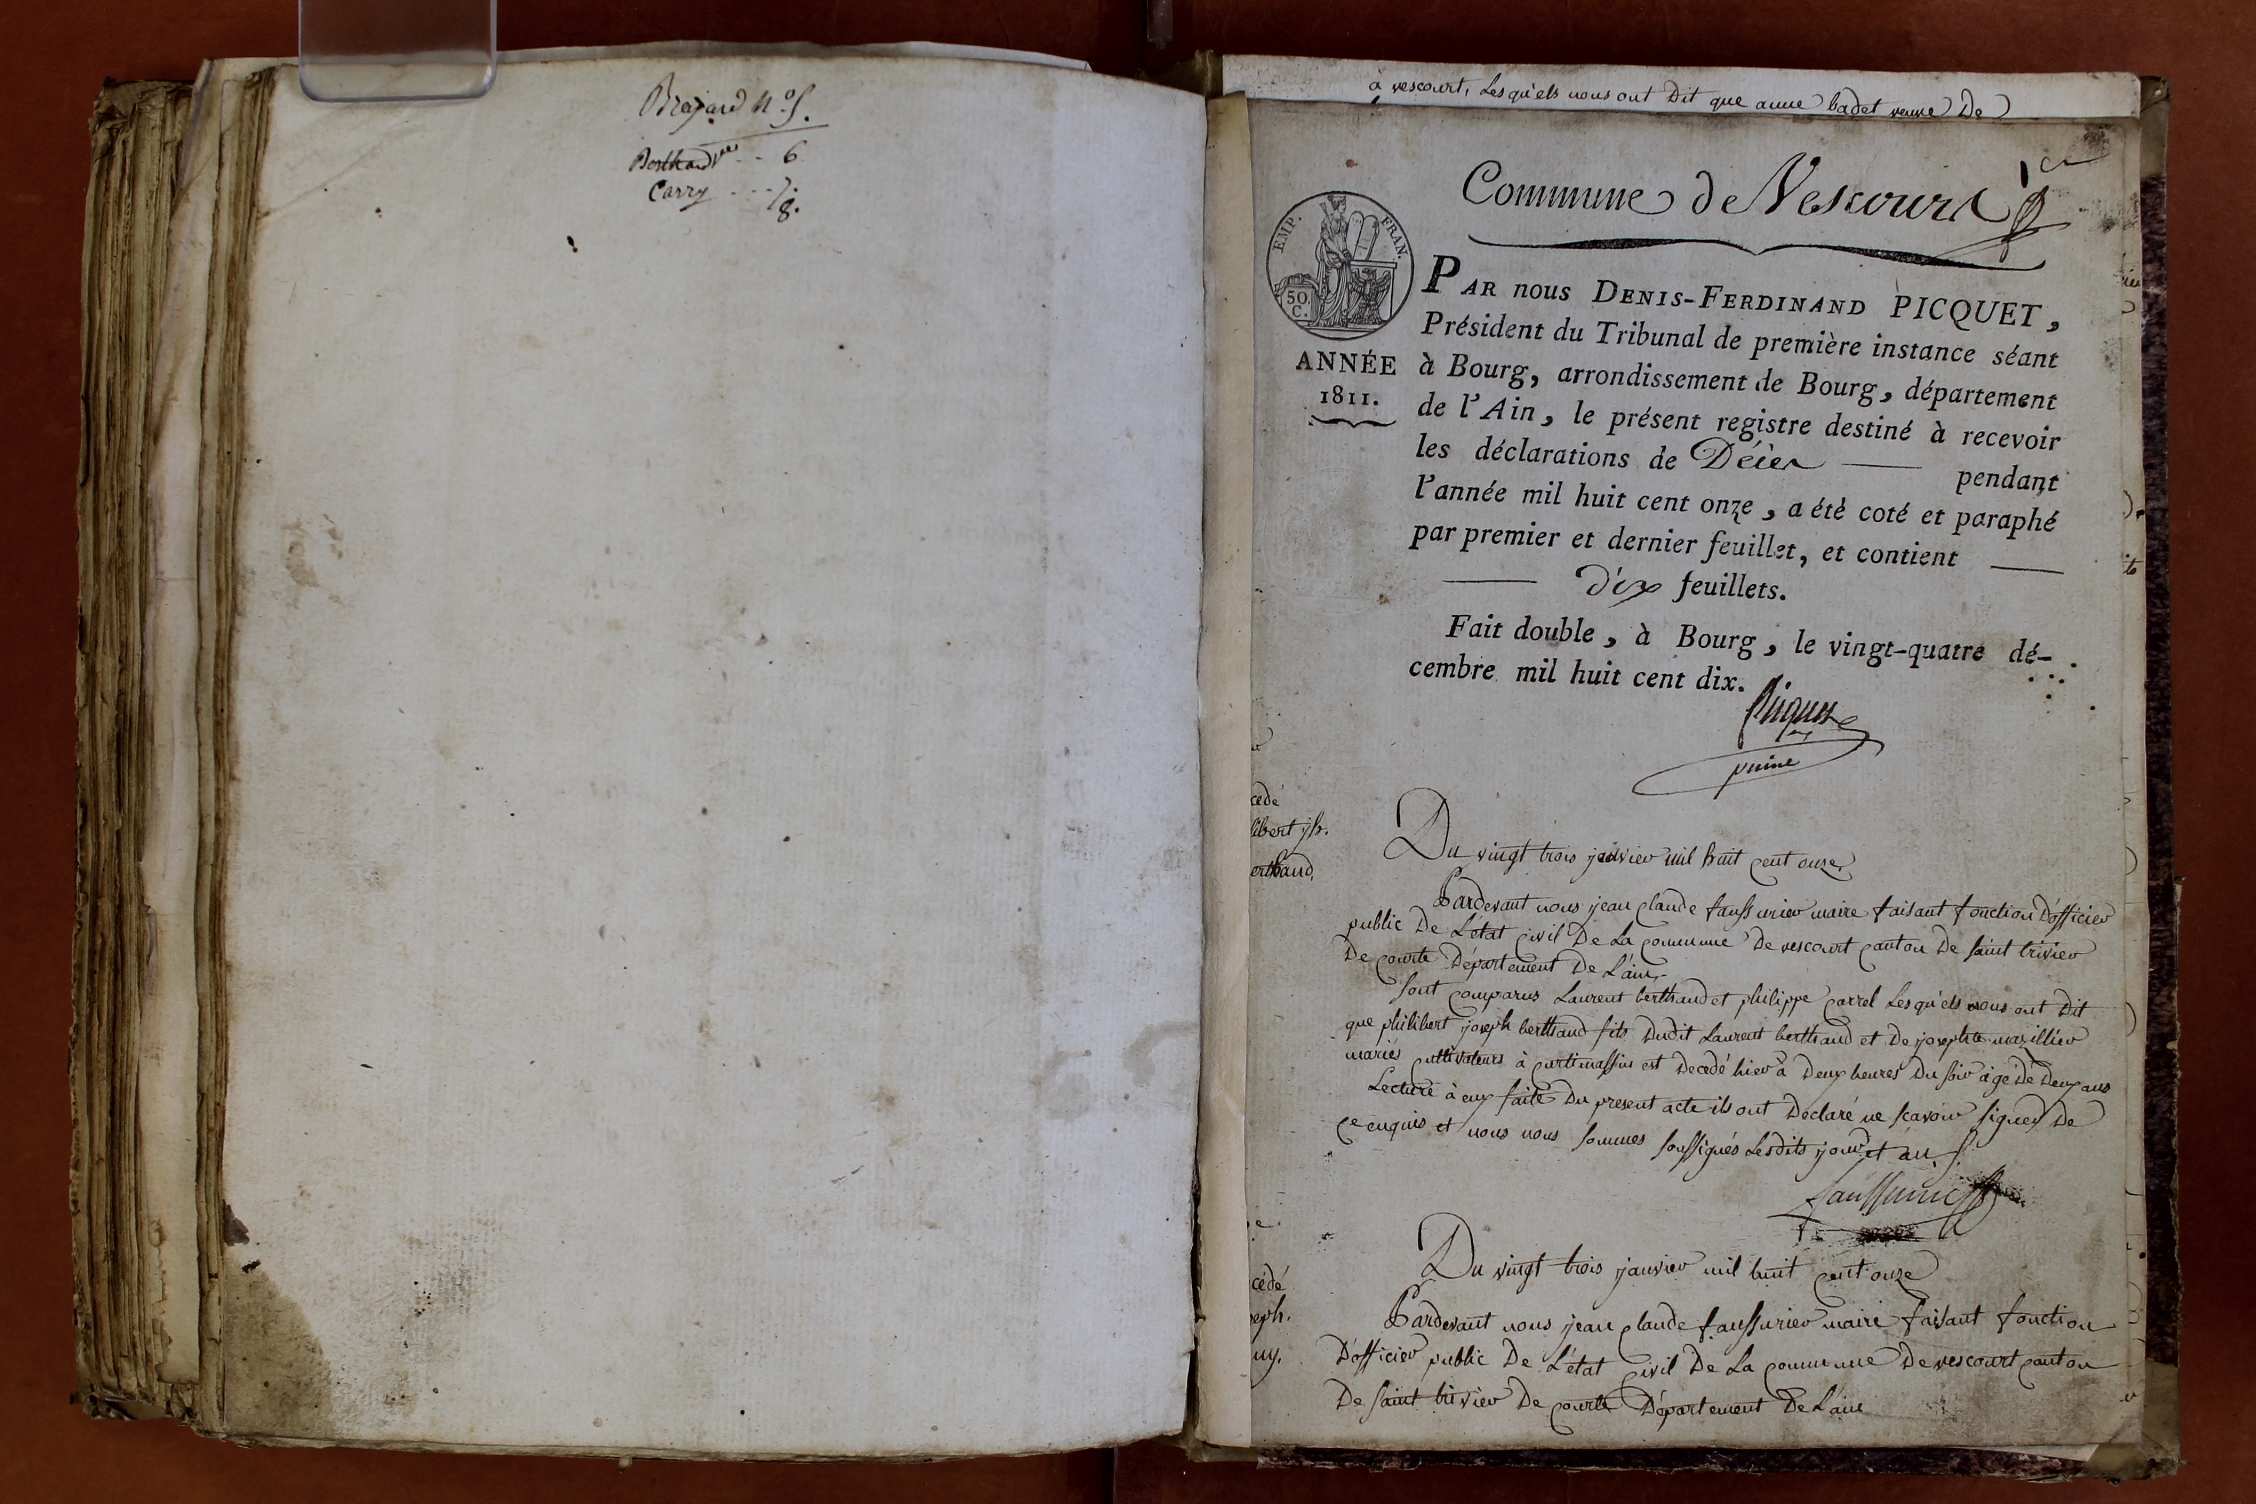 Brajard n.o 5.
Berthaud vve -- 6
Carry --- 7.
8.
à vescourt, Lesquels nous ont Dit que anne badet veuve De
1er
Commune de Vescourt
EMP. FRAN.
50.
C.
ANNÉE
1811.
PAR nous DENIS-FERDINAND PICQUET,
Président du Tribunal de première instance séant
à Bourg, arrondissement de Bourg, département
de l'Ain, le présent registre destiné à recevoir
les déclarations de Décès — pendant
l'année mil huit cent onze, a été coté et paraphé
par premier et dernier feuillet, et contient —
— dix feuillets.
Fait double, à Bourg, le vingt-quatre dé-
cembre mil huit cent dix.
Picquet
Du vingt trois janvier mil huit cent onze
Pardevant nous jean claude faussurier maire faisant fonction D'officier
public De L'état civil De La commune De vescourt canton De saint trivier
De courte Département De L'ain
sont comparus Laurent berthaud et philippe carrel Lesqu'els nous ont Dit
que philibert joseph berthaud fils Dudit Laurent berthaud et De josephte mazillier
mariés cultivateurs à curtimassin est Decedé hier à Deux heures Du soir agé De Deux ans
Lecture à eux faite Du present acte ils ont Déclaré ne scavoir signer De
ce enquis et nous nous sommes soussignés Lesdits jour et an
faussurier
cedé
libert jh.
erthaud,
Du vingt trois janvier mil huit cent onze
Pardevant nous jean claude faussurier maire faisant fonction
D'officier public De L'état civil De La commune De vescourt canton
De saint trivier De courte Département De L'ain
cédé
seph.
uy.